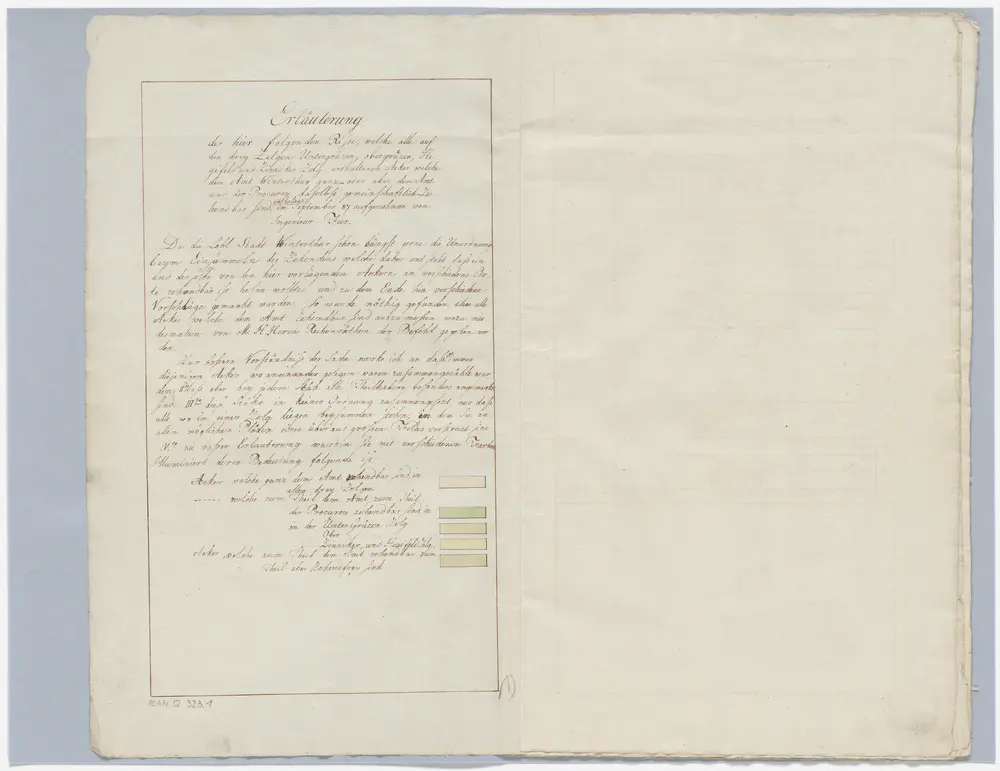 Erläuterung
der hier folgenden Risse, welche alle auf
den drey Zelgen Untergrüzen, obergrüzen, He
gifeld und Zinziker Zelg enthaltenen Aeker welche
dem Amt Winterthur ganz oder aber dem Amt
und der Procurey gemeinschaftlich Ze
hendbar sind, im September 87 aufgenohmen von
Ingenieur Feer.
Da die Lobl. Stadt Winterthur schon längst gerne die Unordnung
beym Einsammeln des Zehendens welche daher entsteht dass ein
und der selbe von den hier vorliegenden Aekern an verschiedene Or
te zehendbar ist heben wollte und zu dem Ende hin verschiedene
Vorschläge gemacht wurden, so wurde nöthig gefunden alle
Aeker welche dem Amt zehendbar sind auszumessen wozu mir
desnahen von M. H. Herren Rechenräthen der Befehl gegeben wor
den.
Zur bessern Verständniss der Sache merke ich an dass immer
diejenigen Aeker wo aneinander gelegen waren zusammengezählt wur
den, dass aber bey jedem Stük alle Theilhabern besonders angemerkt
sind. III.tens diese Stüke in keiner Ordnung zusammengesezt nur dass
alle wo in einer Zelg liegen beysammen stehen, in dem Sie an
allen möglichen Pläzen eines überaus grossen Feldes verstreut sind
IV.tens zu besserer Erläuterung wurden Sie mit verschiedenen Farben
Illuminiert deren Bedeutung folgende ist
Aeker welche ganz dem Amt zehendbar sind in
allen drey Zelgen
------ welche zum Theil dem Amt zum Theil
der Procurey zehendbar sind in
in der Unter Grüzen Zelg
Ober
Zinziker, und Hegifeld Zelg.
Aeker welche zum Theil dem Amt zehendbar zum
Theil aber Zehendfrey sind
(1)
PLAN Q 323.1